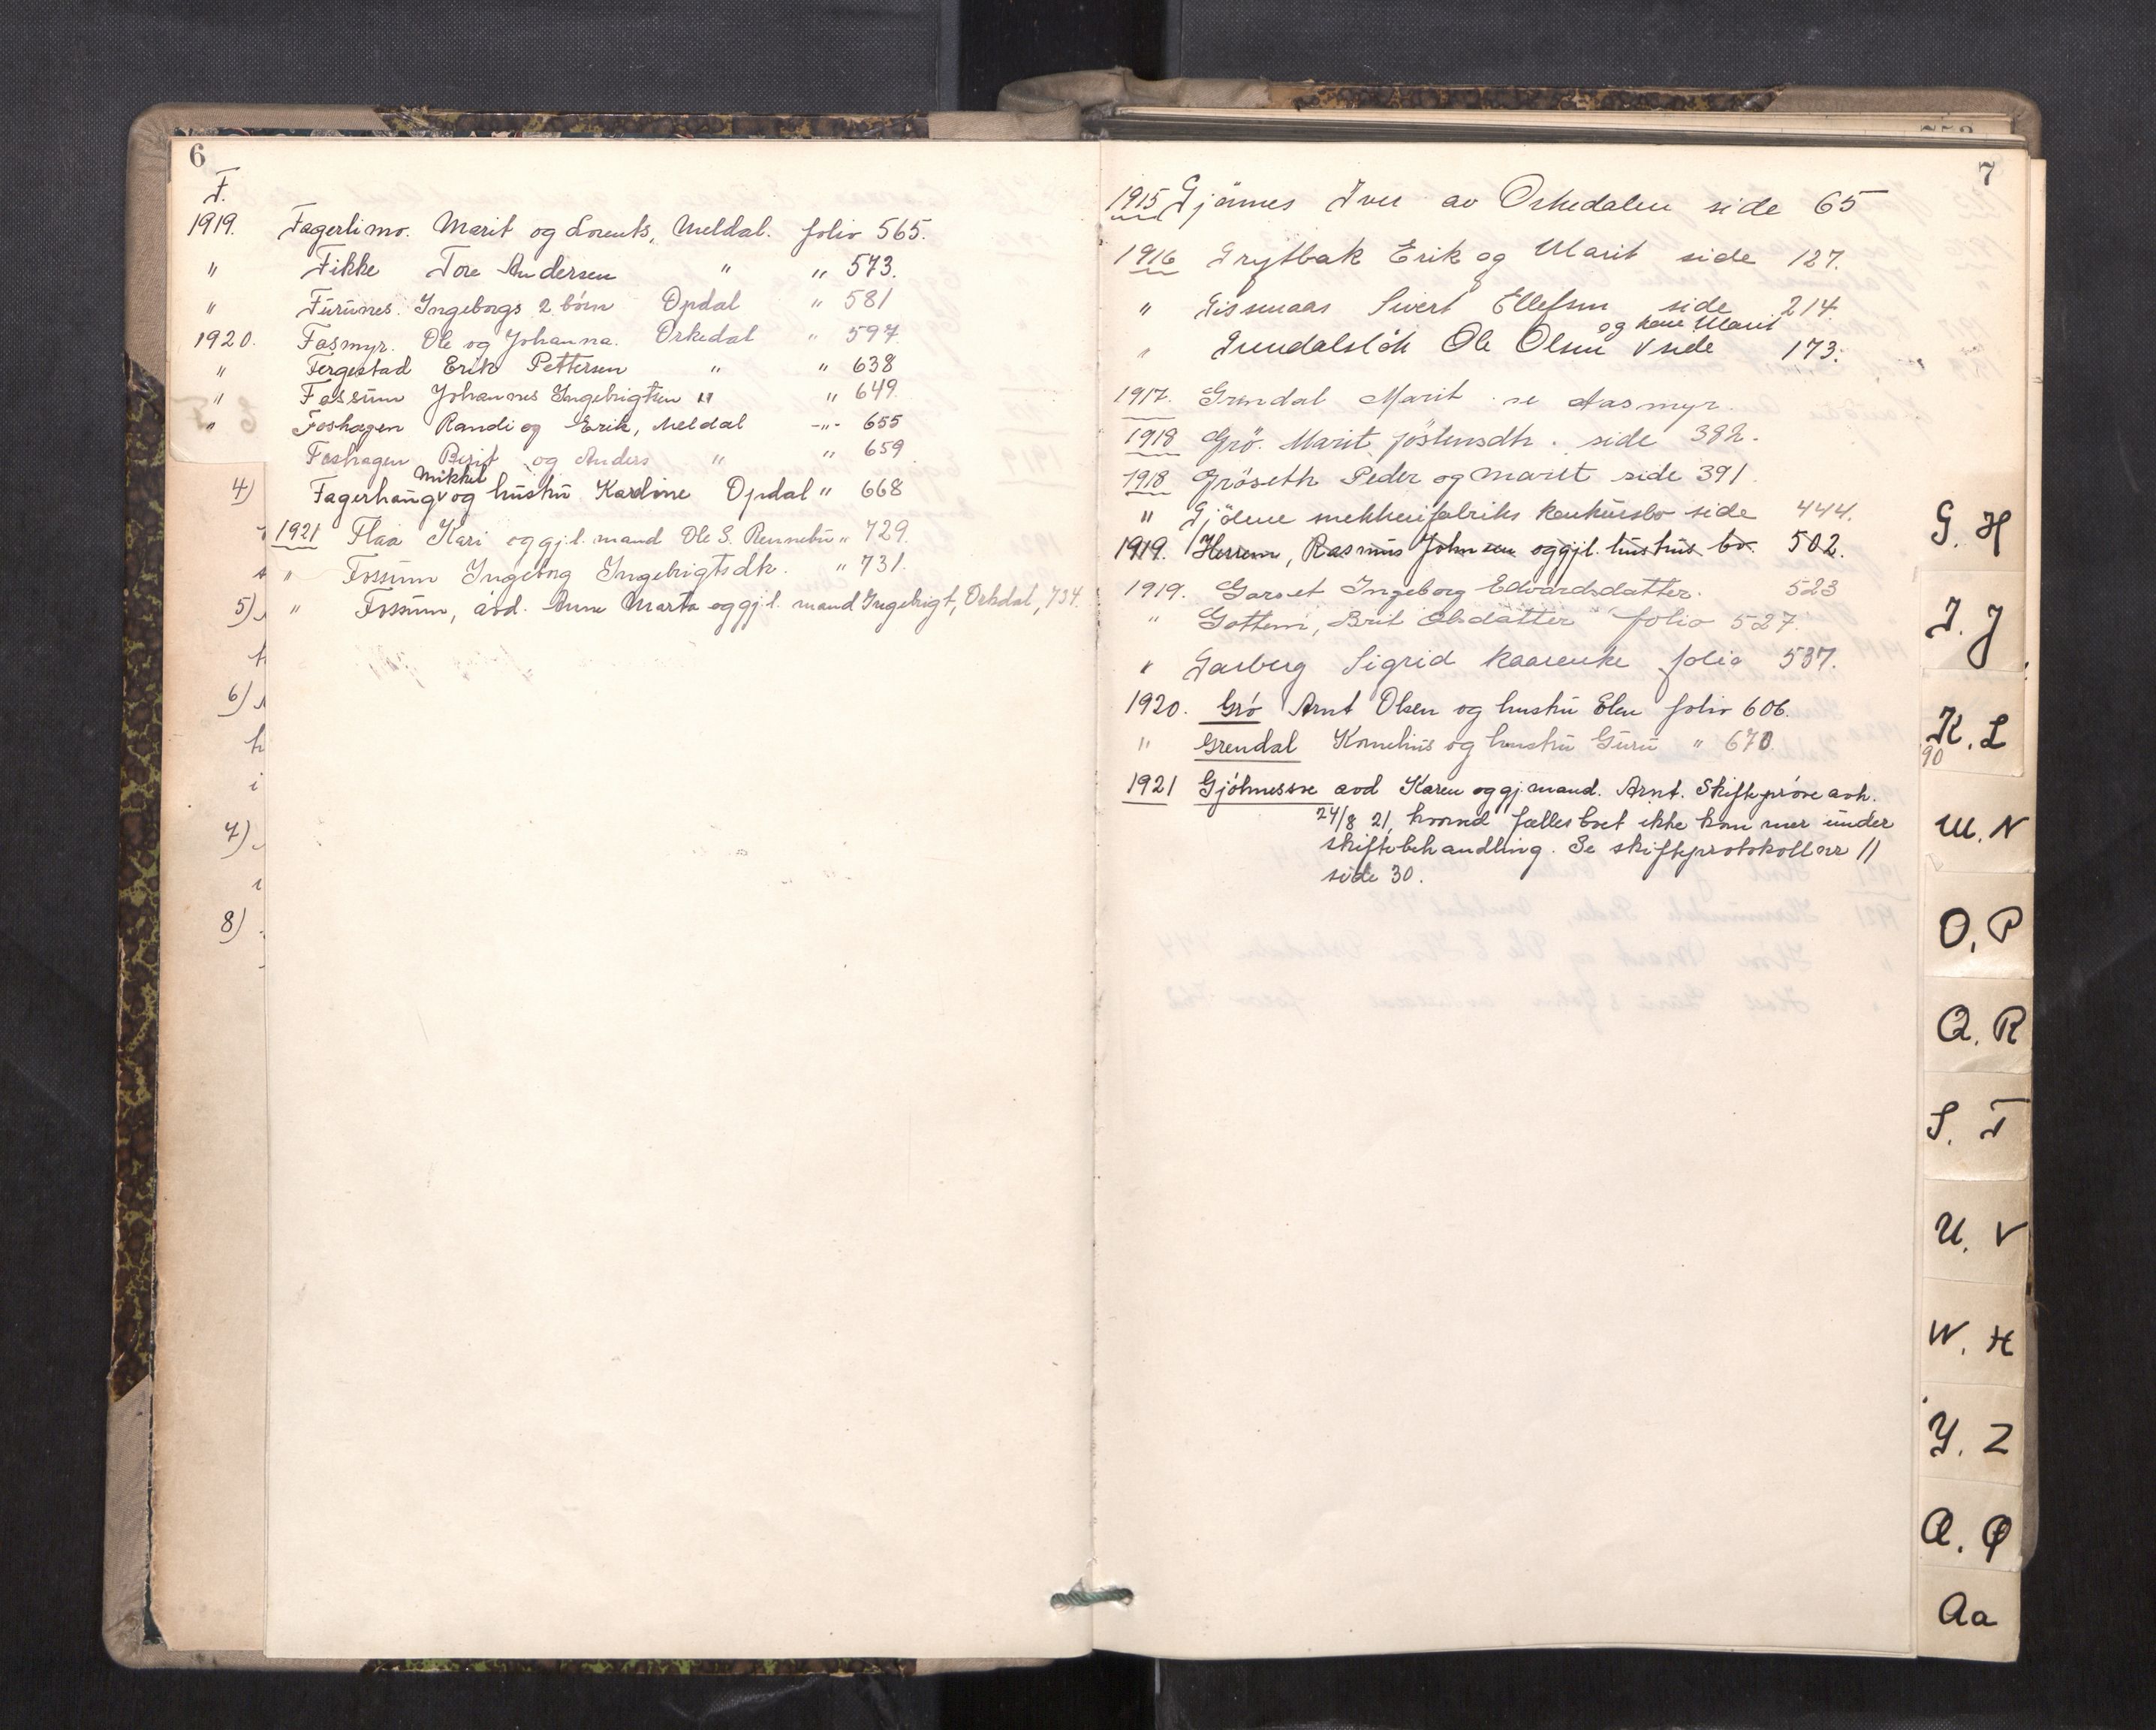 6
F.
1919. Fagerlimo. Marit og Lorents, Meldal. folio 565.
" Fikke Tore Andersen " " 573.
" Furunes. Ingeborgs 2 börn Opdal " 581
1920. Fosmyr. Ole og Johanna. Orkedal " 597.
" Fergestad Erik Pettersen " " 638
" Fossum Johannes Ingebrigtsen " " 649.
" Foshagen Randi og Erik, Meldal -"- 655
Foshagen Berit og Anders " " 659
Mikkel
Fagerhaug v og hustru Kardine Opdal " 668
1921 Flaa Kari og gj.l. mand Ole S. Rennebu " 729.
" Fossum Ingeborg Ingebrigtsdtr. " 731.
" Fossum, avd. Anne Marta og gj.l. mand Ingebrigt, Orkdal, 734.
4)
5)
6)
7)
8)
7
1915 Gjönnes Iver av Orkedalen side 65
1916 Grytbak Erik og Marit side 127.
" Gissenaas Sivert Ellefsen side 214.
og kone Marit
" Grendalslök Ole Olsen v side 173.
1917. Grindal Marit se Aasmyr.
1918 Grö. Marit Jöstensdtr. side 382.
1918 Gröseth Peder og Marit side 391.
" Gjölme snekkerifabriks konkursbo side 444.
1919. Herrem, Rasmus Johnsen og gjl. hustrus bo. 502.
1919. Garset Ingeborg Edvardsdatter. 523
" Gottem, Brit Olsdatter folio 527.
" Garberg Sigrid Kaarenke folio 537.
1920. Grö Arnt Olsen og hustru Elen folio 606.
" Grendal Kornelius og hustru Guru " 670
1921 Gjölmesve avd Karen og gj. mand. Arnt. Skifteprøve avh.
24/8 21, hvorved fællesboet ikke kom mer under
skiftebehandling. Se skifteprotokoll nr 11
side 30.
G. H
I. J
K. L
90
M. N
O. P
Q. R
S. T
U. V
W. X
Y. Z
Æ. Ø
Aa